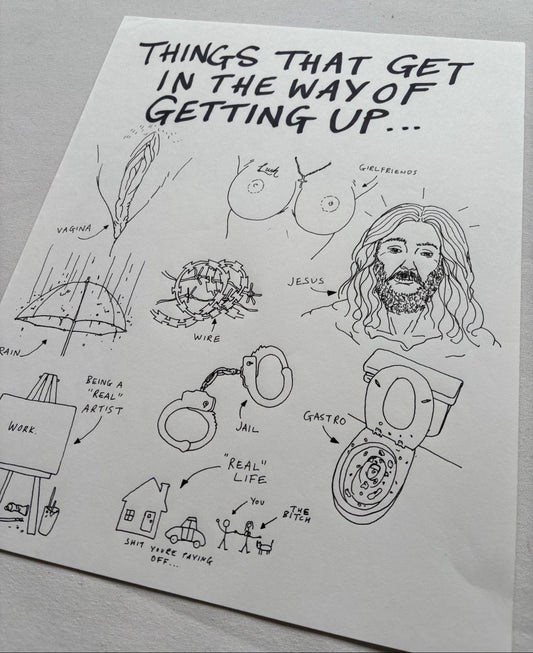 THINGS THAT GET
IN THE WAY OF
GETTING UP...
Lush
GIRLFRIENDS
VAGINA
JESUS
RAIN
WIRE
BEING A
"REAL"
ARTIST
WORK.
JAIL
GASTRO
"REAL"
LIFE
YOU
THE
BITCH
SHIT YOU'RE PAYING
OFF...